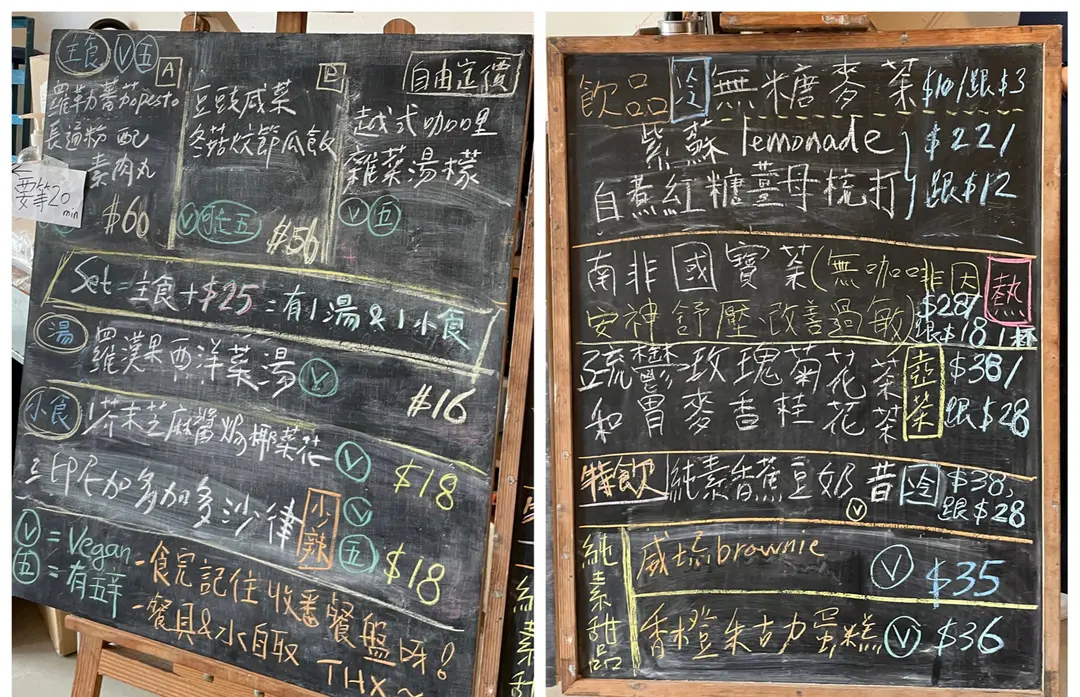 主食 V 五
A
羅勒蕃茄pesto
長通粉 配
素肉丸
$60
←
要等20
min
B
豆豉咸菜
冬菇炆節瓜飯
V 走五
$56
自由定價
越式咖喱
雜菜湯檬
V 五
Set = 主食 + $25 = 有1湯 & 1小食
湯 羅漢果西洋菜湯 V
$16
小食 芥末芝麻醬焗椰菜花 V $18
三色尸加多加多沙律 小辣 V 五 $18
V = Vegan
五 = 有五辛
-食完記住收番餐盤呀!
-餐具&水自取 THX~
飲品 冷 無糖麥茶 $10/跟$3
紫蘇 lemonade $22/
自煮紅糖薑母梳打 跟$12
南非國寶茶(無咖啡因 熱
安神舒壓.改善過敏) $28/
跟$18/杯
疏鬱玫瑰菊花茶 壺茶 $38/
和胃麥杳桂花茶 跟$28
特飲 純素香蕉豆奶昔 冷 $38,
V 跟$28
純素甜品
威琺brownie V $35
香橙朱古力蛋糕 V $36